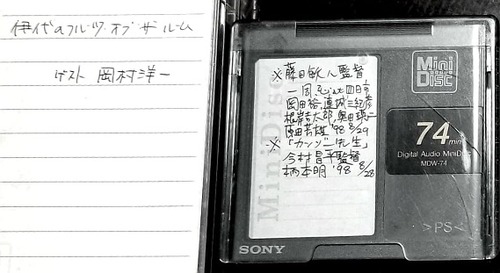 伊代のフルーツ・オブ・ザ・ルーム
ゲスト 岡村洋一
※藤田敏八監督
一周忌
岡田裕、
根岸吉太郎、奥田瑛二
原田芳雄 '98 8/29
※「カンゾー先生」
今村昌平監督
柄本明 '98 8/28
MiniDisc
Mini Disc
74 min
Digital Audio MiniDisc
MDW-74
>PS<
SONY